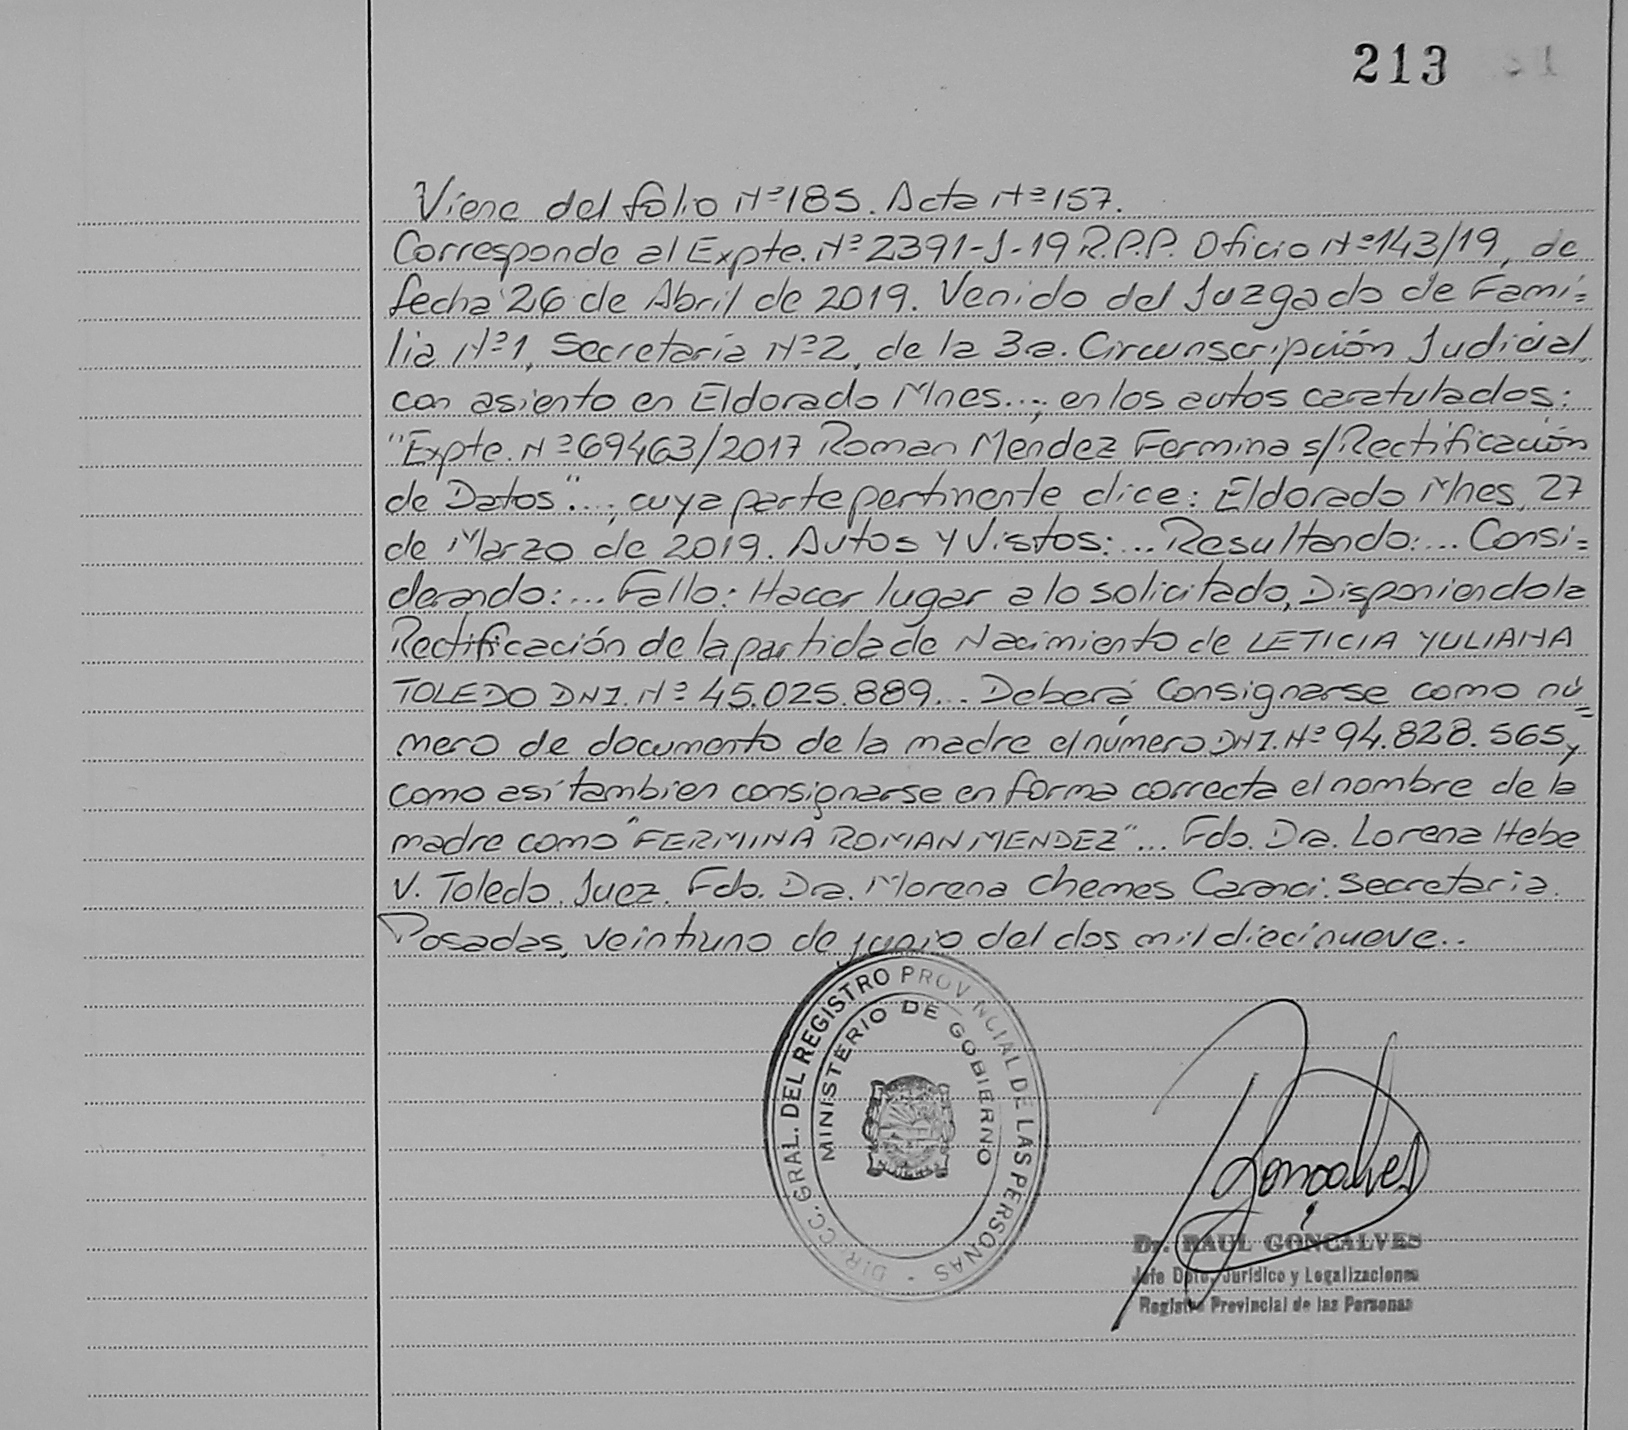 213
Viene del folio Nº185. Acta Nº157.
Corresponde al Expte. Nº2391-J-19 R.P.P. Oficio Nº143/19, de
fecha 26 de Abril de 2019. Venido del Juzgado de Fami=
lia Nº1, Secretaría Nº2, de la 3a. Circunscripción Judicial,
con asiento en Eldorado Mnes...; en los autos caratulados:
"Expte. Nº69463/2017 Roman Mendez Fermina s/Rectificación
de Datos"...; cuya parte pertinente dice: Eldorado Mnes, 27
de Marzo de 2019. Autos y Vistos:... Resultando:... Consi=
derando:... Fallo: Hacer lugar a lo solicitado, Disponiendo la
Rectificación de la partida de Nacimiento de LETICIA YULIANA
TOLEDO DNI. Nº 45.025.889... Deberá Consignarse como nú=
mero de documento de la madre el número DNI. Nº 94.828.565,
como así tambien consignarse en forma correcta el nombre de la
madre como "FERMINA ROMAN MENDEZ"... Fdo. Dra. Lorena Hebe
V. Toledo. Juez. Fdo. Dra. Morena Chemes Caranci. Secretaria.
Posadas, veintiuno de junio del dos mil diecinueve..
DIRCC. GRAL. DEL REGISTRO PROVINCIAL DE LAS PERSONAS
MINISTERIO DE GOBIERNO
Gonçalves
Dr. RAUL GONÇALVES
Jefe Dpto. Jurídico y Legalizaciones
Registro Provincial de las Personas